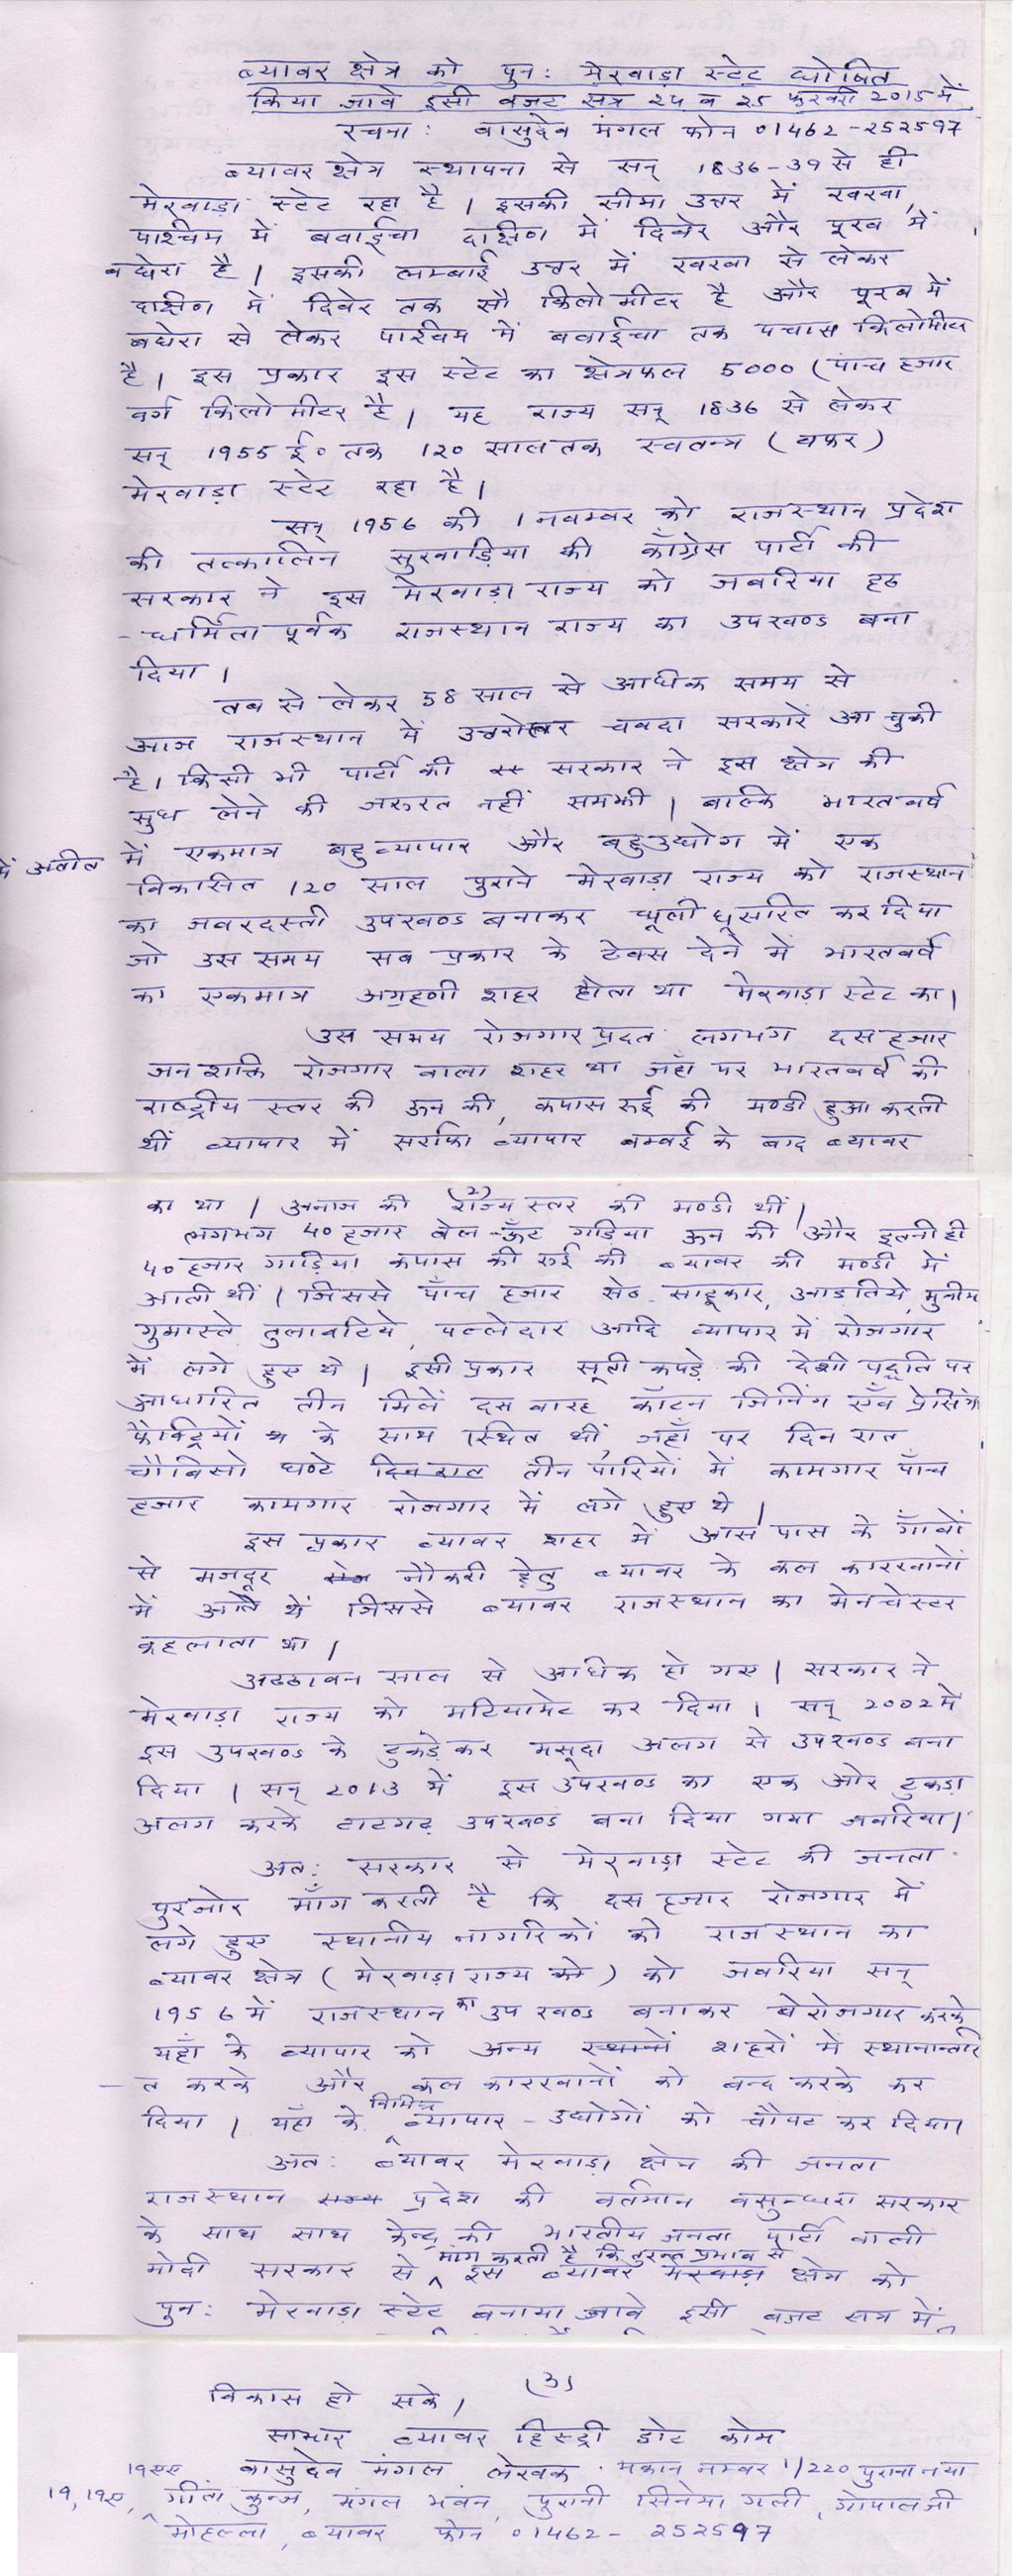 ब्यावर क्षेत्र को पुन: मेरवाड़ा स्टेट घोषित
किया जावे इसी बजट सत्र 24 व 25 फरवरी 2015 में
रचना: वासुदेव मंगल फोन 01462-252597
ब्यावर क्षेत्र स्थापना से सन् 1836-39 से ही
मेरवाड़ा स्टेट रहा है। इसकी सीमा उत्तर में खरवा,
पश्चिम में बवाईचा दक्षिण में दिवेर और पूरब में
बघेरा है। इसकी लम्बाई उत्तर में खरवा से लेकर
दक्षिण में दिवेर तक सौ किलोमीटर है और पूरब में
बघेरा से लेकर पश्चिम में बवाईचा तक पचास किलोमीटर
है। इस प्रकार इस स्टेट का क्षेत्रफल 5000 (पांच हजार
वर्ग किलोमीटर है। यह राज्य सन् 1836 से लेकर
सन् 1955 ई० तक 120 साल तक स्वतन्त्र (बफर)
मेरवाड़ा स्टेट रहा है।
सन् 1956 की 1 नवम्बर को राजस्थान प्रदेश
की तत्कालिन सुखाड़िया की काँग्रेस पार्टी की
सरकार ने इस मेरवाड़ा राज्य को जबरिया हठ
-धर्मिता पूर्वक राजस्थान राज्य का उपखण्ड बना
दिया।
तब से लेकर 58 साल से अधिक समय से
आज राजस्थान में उत्तरोत्तर चवदा सरकारें आ चुकी
है। किसी भी पार्टी की सरकार ने इस क्षेत्र की
सुध लेने की जरुरत नहीं समझी। बल्कि भारतवर्ष
में अतीत में एकमात्र बहु व्यापार और बहुउद्योग में एक
विकासित 120 साल पुराने मेरवाड़ा राज्य को राजस्थान
का जबरदस्ती उपखण्ड बनाकर धूली धूसरित कर दिया
जो उस समय सब प्रकार के टेक्स देने में भारतवर्ष
का एकमात्र अग्रहणी शहर होता था मेरवाड़ा स्टेट का।
उस समय रोजगार प्रदत लगभग दस हजार
जन शक्ति रोजगार वाला शहर था जहाँ पर भारतवर्ष की
राष्ट्रीय स्तर की ऊन की, कपास रूई की मण्डी हुआ करती
थीं व्यापार में सर्राफा व्यापार बम्बई के बाद ब्यावर
(2)
का था। अनाज की राज्य स्तर की मण्डी थीं।
लगभग 40 हजार बेल-ऊँट गडिया ऊन की और इतनी ही
40 हजार गाड़िया कपास की रुई की ब्यावर की मण्डी में
आती थीं। जिससे पाँच हजार सेठ साहूकार, आडतिये, मुनीम
गुमास्ते, तुलावटिये, पल्लेदार आदि व्यापार में रोजगार
में लगे हुए थे। इसी प्रकार सूती कपड़े की देशी पद्धति पर
आधारित तीन मिलें दस बारह कॉटन जिनिंग एवँ प्रेसिंग
फैक्ट्रियों के साथ स्थित थीं, जहाँ पर दिन रात
चौबिसो घण्टे दिन रात तीन पारियों में कामगार पाँच
हजार कामगार रोजगार में लगे हुए थे।
इस प्रकार ब्यावर शहर में आस पास के गाँवों
से मजदूर नौकरी हेतु ब्यावर के कल कारखानों
में आते थें जिससे ब्यावर राजस्थान का मेनचेस्टर
कहलाता था।
अठठावन साल से अधिक हो गए। सरकार ने
मेरवाड़ा राज्य को मटियामेट कर दिया। सन् 2002 में
इस उपखण्ड के टुकड़े कर मसूदा अलग से उपखण्ड बना
दिया। सन् 2013 में इस उपखण्ड का एक और टुकड़ा
अलग करके टाटगढ़ उपखण्ड बना दिया गया जबरिया।
अत: सरकार से मेरवाड़ा स्टेट की जनता
पुरजोर माँग करती है कि दस हजार रोजगार में
लगे हुए स्थानीय नागरिकों को राजस्थान का
ब्यावर क्षेत्र (मेरवाड़ा राज्य को) को जबरिया सन्
1956 में राजस्थान का उपखण्ड बनाकर बेरोजगार करके
यहाँ के व्यापार को अन्य शहरों में स्थानान्तरि
-त करके और कल कारखानों को बन्द करके कर
दिया। यहाँ के विभिन्न व्यापार-उद्योगों को चौपट कर दिया।
अत: ब्यावर मेरवाड़ा क्षेत्र की जनता
राजस्थान राज्य प्रदेश की वर्तमान वसुन्धरा सरकार
के साथ साथ केन्द्र की भारतीय जनता पार्टी वाली
मोदी सरकार से माँग करती है कि तुरन्त प्रभाव से इस ब्यावर मेरवाड़ा क्षेत्र को
पुन: मेरवाड़ा स्टेट बनाया जावे इसी बजट सत्र में
(3)
विकास हो सके।
साभार ब्यावर हिस्ट्री डोट कोम
वासुदेव मंगल लेखक मकान नम्बर 1/220 पुराना नया
19, 19ए, 19एए गीता कुन्ज, मंगल भवन, पुरानी सिनेमा गली, गोपालजी
मोहल्ला, ब्यावर फोन 01462-252597